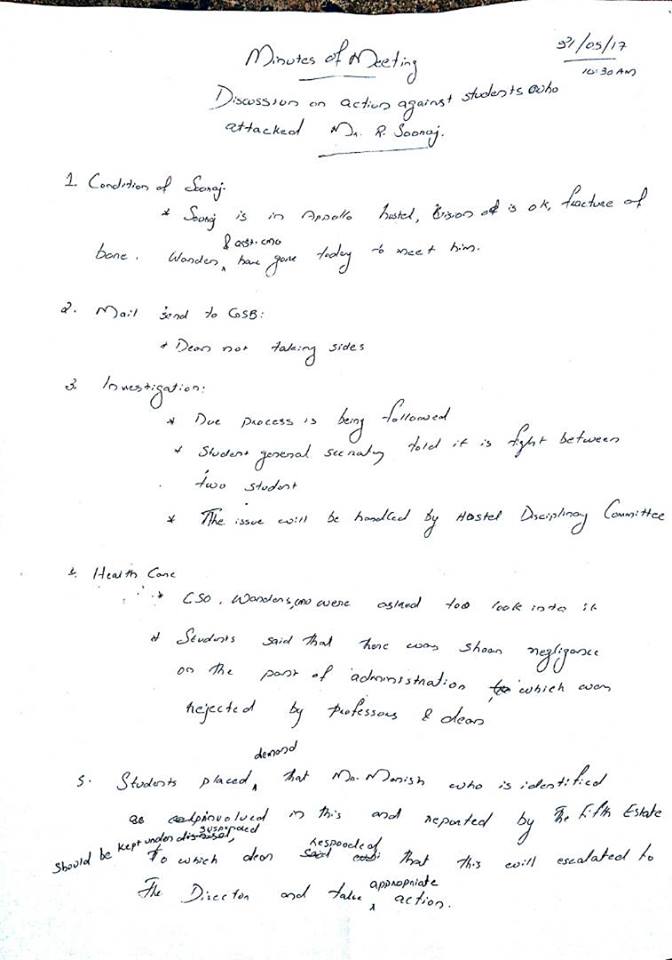 Minutes of Meeting
31/05/17
10:30 AM
Discussion on action against students who
attacked Mr. R. Sooraj.
1. Condition of Sooraj.
* Sooraj is in Apollo hostel, is ok, fracture of
& asst. cmo
bone. Wardens, have gone today to meet him.
2. Mail send to CoSB:
* Dean not taking sides
3. Investigation:
* Due process is being followed
* Student general secretary told it is fight between
two student
* The issue will be handled by Hostel Disciplinary Committee
4. Health Care
* CSO, Wardens, cmo were asked too look into it
* Students said that there was shear negligance
on the part of administration which was
rejected by professors & deans
demand
5. Students placed, that Mr. Manish who is identified
as involved in this and reported by The Fifth Estate
should be kept under suspended
responded
To which dean that this will escalated to
appropriate
The Director and take action.